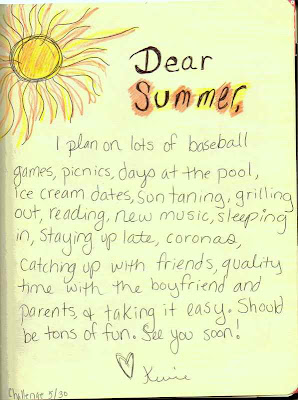 Dear
Summer,
I plan on lots of baseball
games, picnics, days at the pool,
ice cream dates, sun taning, grilling
out, reading, new music, sleeping
in, staying up late, coronas,
catching up with friends, quality
time with the boyfriend and
parents, & taking it easy. Should
be tons of fun. See you soon!
Challenge 5/30